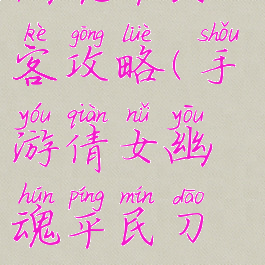 kè gōng lüè shǒu
客攻略(手
yóu qiàn nǚ yōu
游倩女幽
hún píng mín dāo
魂平民刀